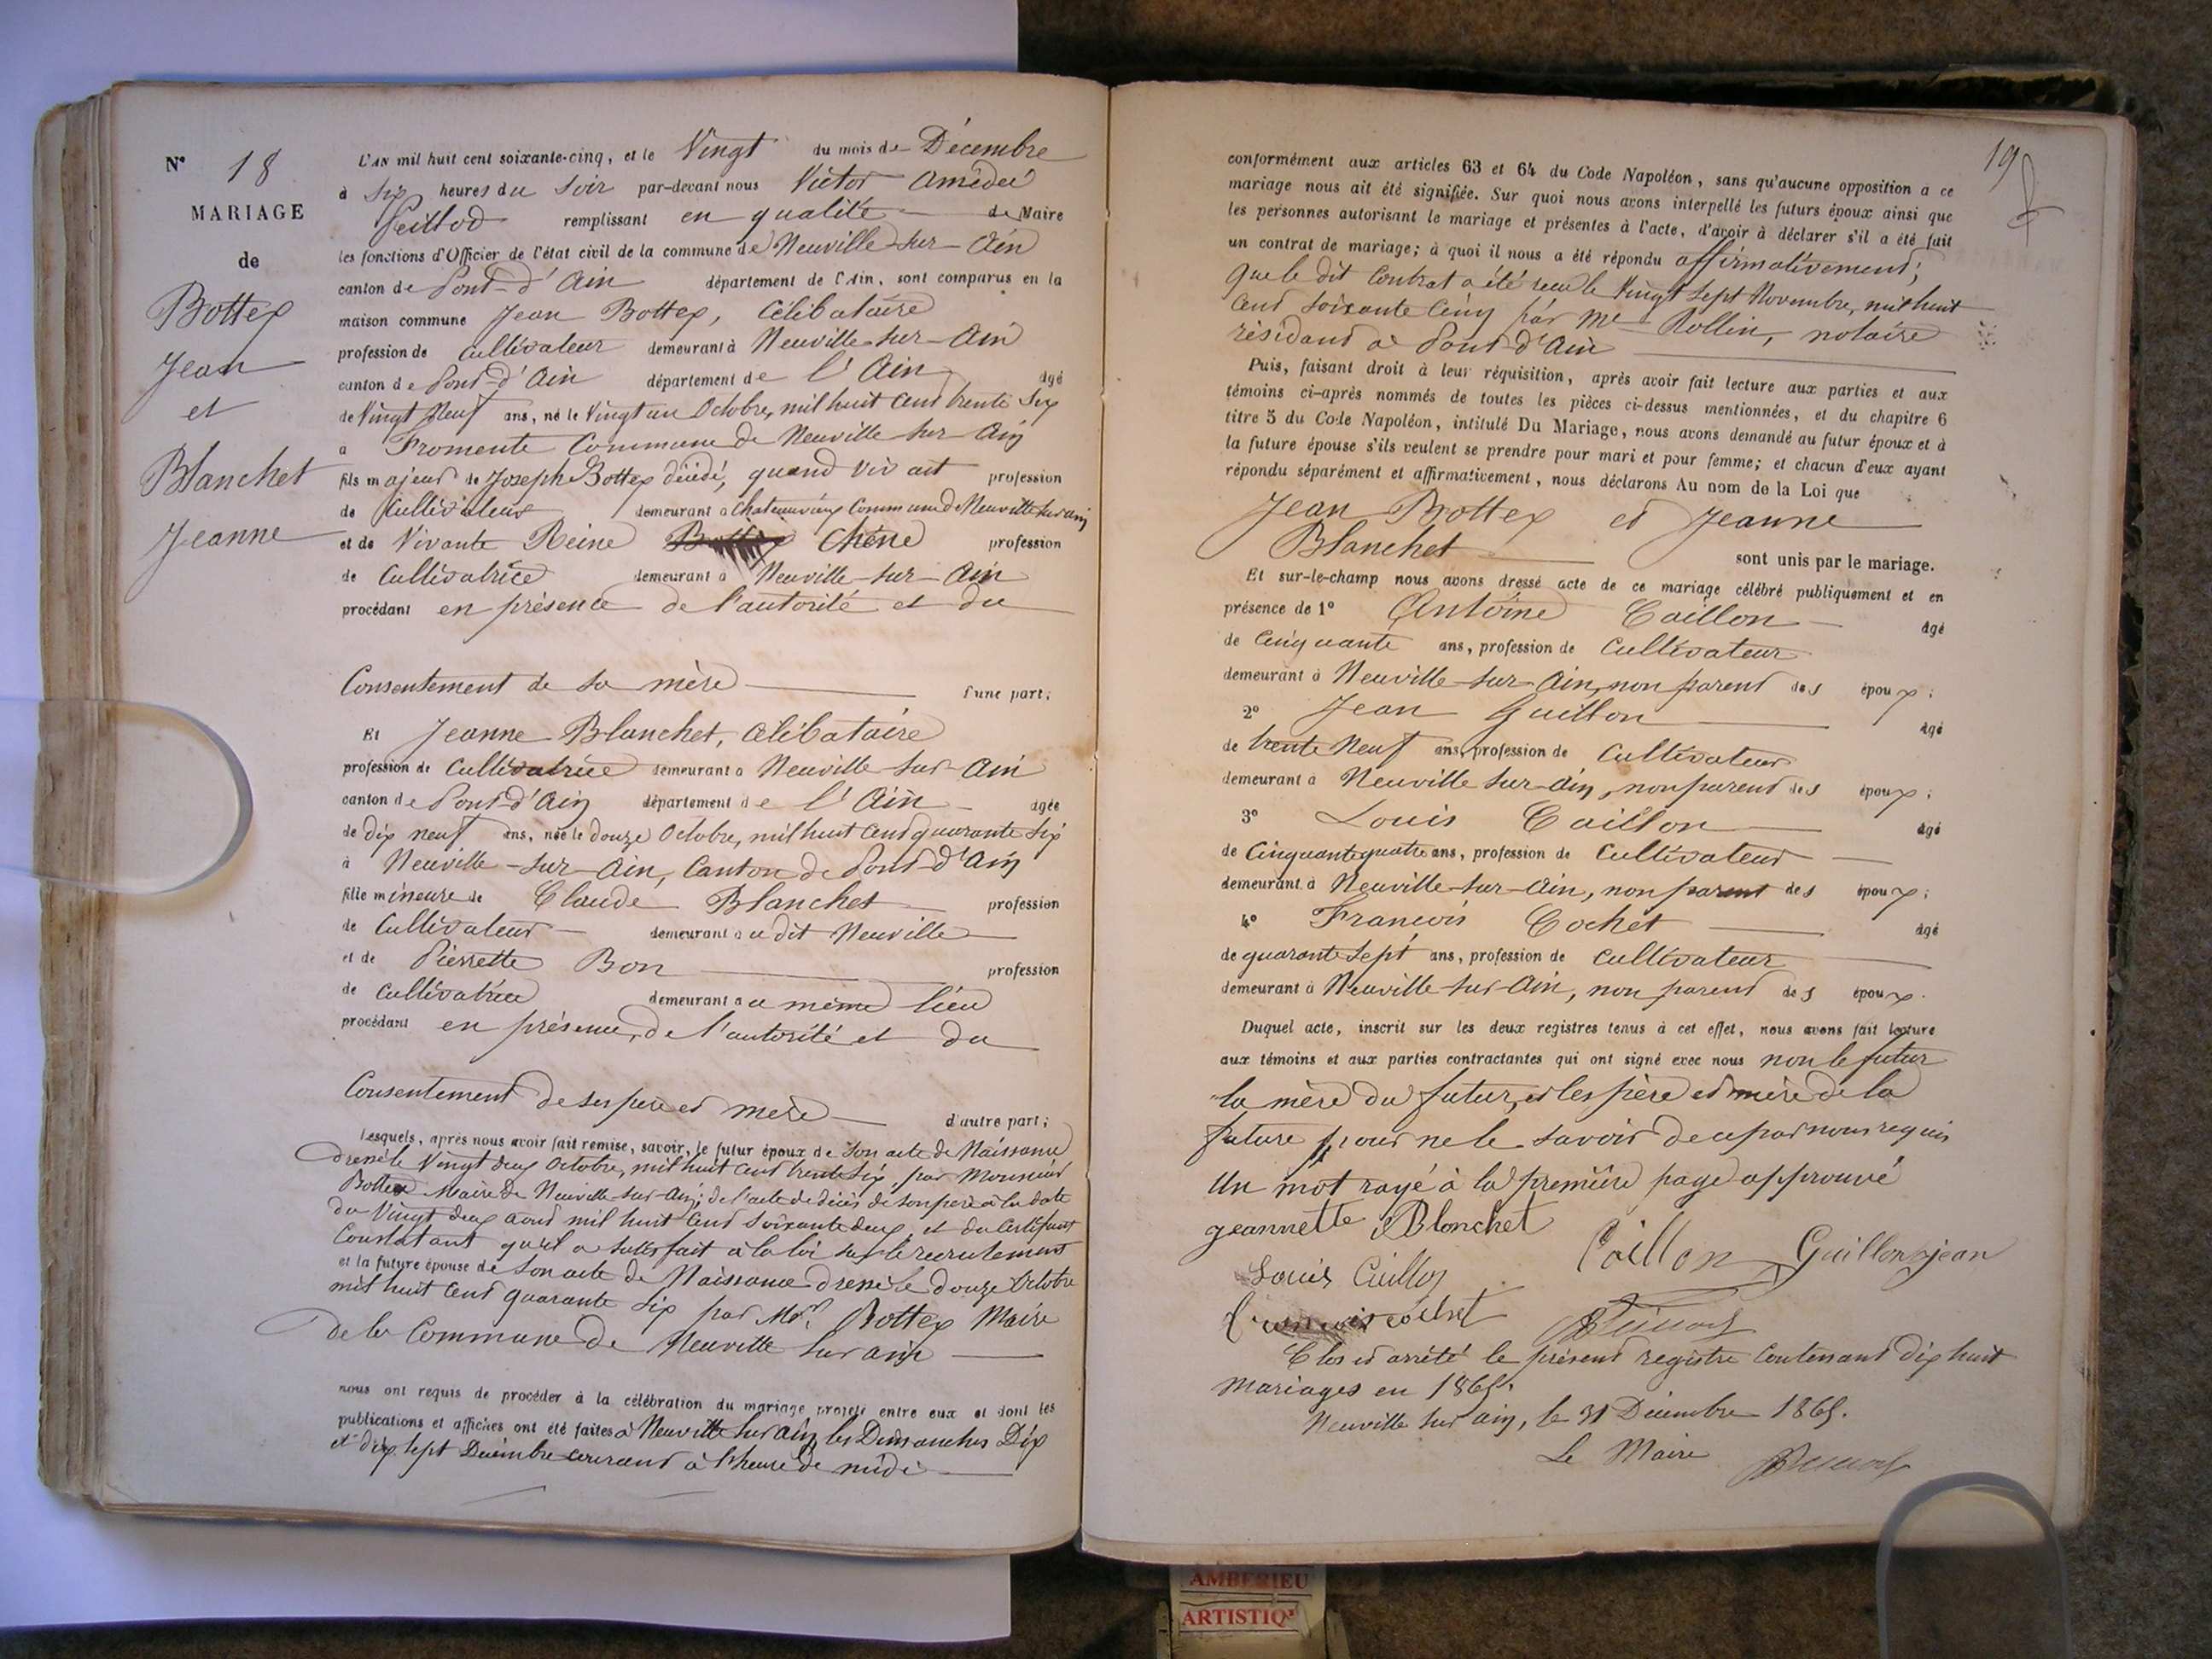 N° 18
MARIAGE
de
Bottex
Jean
et
Blanchet
Jeanne
L'AN mil huit cent soixante-cinq, et le Vingt du mois de Décembre
à six heures du soir par-devant nous Victor Amédée
remplissant en qualité de Maire
les fonctions d'Officier de l'état civil de la commune de Neuville-sur-Ain
canton de Pont-d'Ain département de l'Ain, sont comparus en la
maison commune Jean Bottex, Célibataire
profession de Cultivateur demeurant à Neuville-sur-Ain
canton de Pont-d'Ain département de l'Ain âgé
de Vingt Neuf ans, né le Vingt un Octobre, mil huit Cent trente Six
à Fromente Commune de Neuville sur Ain
fils majeur de Joseph Bottex décédé, quand vivait profession
de Cultivateur demeurant à Chateauvieux Commune de Neuville sur ain
et de Vivante Reine Chêne profession
de Cultivatrice demeurant à Neuville-sur-Ain
procédant en présence de l'autorité et du
Consentement de sa mère d'une part;
Et Jeanne Blanchet, Célibataire
profession de Cultivatrice demeurant à Neuville-sur-Ain
canton de Pont-d'Ain département de l'Ain âgée
de dix neuf ans, née le douze Octobre, mil huit Cent quarante six
à Neuville-sur-Ain, Canton de Pont-d'Ain
fille mineure de Claude Blanchet profession
de Cultivateur demeurant au dit Neuville
et de Pierrette Bon profession
de Cultivatrice demeurant au même lieu
procédant en présence, de l'autorité et du
Consentement de ses père et mère d'autre part;
Lesquels, après nous avoir fait remise, savoir, le futur époux de Son acte de Naissance
dressé le Vingt deux Octobre, mil huit Cent trente Six, par Monsieur
Bottex Maire de Neuville-sur-Ain; de l'acte de décès de son père à la date
du Vingt deux aout mil huit Cent Soixante deux, et du Certificat
Constatant qu'il a satisfait à la loi sur le recrutement
et la future épouse de Son acte de Naissance dressé le douze Octobre
mil huit Cent quarante Six par Mr. Bottex Maire
de la Commune de Neuville sur ain
nous ont requis de procéder à la célébration du mariage projeté entre eux et dont les
publications et affiches ont été faites à Neuville sur Ain, les Dimanches Dix
et dix sept Décembre courant à l'heure de midi
19
conformément aux articles 63 et 64 du Code Napoléon, sans qu'aucune opposition a ce
mariage nous ait été signifiée. Sur quoi nous avons interpellé les futurs époux ainsi que
les personnes autorisant le mariage et présentes à l'acte, d'avoir à déclarer s'il a été fait
un contrat de mariage; à quoi il nous a été répondu affirmativement;
que le dit Contrat a été recu le Vingt Sept Novembre, mil huit
Cent Soixante Cinq par Me Rollin, notaire
résidant à Pont-d'Ain
Puis, faisant droit à leur réquisition, après avoir fait lecture aux parties et aux
témoins ci-après nommés de toutes les pièces ci-dessus mentionnées, et du chapitre 6
titre 5 du Code Napoléon, intitulé Du Mariage, nous avons demandé au futur époux et à
la future épouse s'ils veulent se prendre pour mari et pour femme; et chacun d'eux ayant
répondu séparément et affirmativement, nous déclarons Au nom de la Loi que
Jean Bottex et Jeanne
Blanchet sont unis par le mariage.
Et sur-le-champ nous avons dressé acte de ce mariage célébré publiquement et en
présence de 1° Antoine Caillon âgé
de Cinquante ans, profession de Cultivateur
demeurant à Neuville-sur-Ain, non parent des époux;
2° Jean Guillon âgé
de trente Neuf ans, profession de Cultivateur
demeurant à Neuville sur-Ain, non parent des époux;
3° Louis Caillon âgé
de Cinquante quatre ans, profession de Cultivateur
demeurant à Neuville-sur-Ain, non parent des époux;
4° Francois Cochet âgé
de quarante Sept ans, profession de Cultivateur
demeurant à Neuville-sur-Ain, non parent des époux.
Duquel acte, inscrit sur les deux registres tenus à cet effet, nous avons fait lecture
aux témoins et aux parties contractantes qui ont signé avec nous non le futur
la mère du futur, et les père et mère de la
future pour ne le savoir de ce par nous requis
Un mot rayé à la première page approuvé
jeannette Blanchet
Caillon Guillon jean
Louis Caillon
francois cochet
Clos et arrêté le présent registre Contenant dix huit
Mariages en 1865.
Neuville sur ain, le 31 Décembre 1865.
Le Maire
AMBERIEU
ARTISTIQ